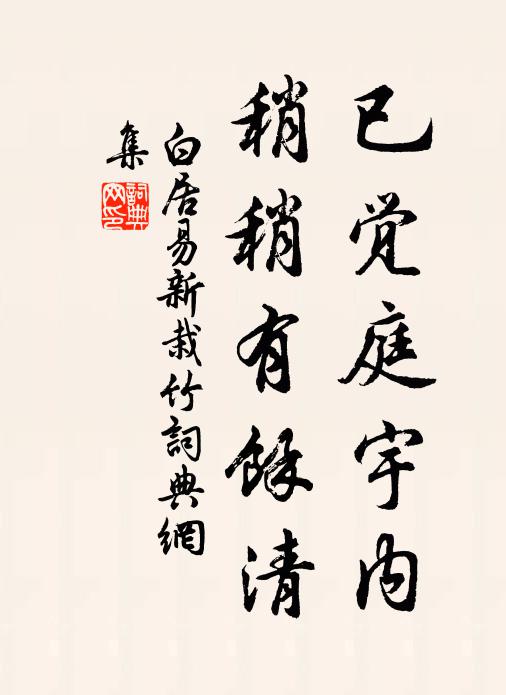 已觉庭宇内
稍稍有餘清
白居易新栽竹詞典網
集
詞典網印